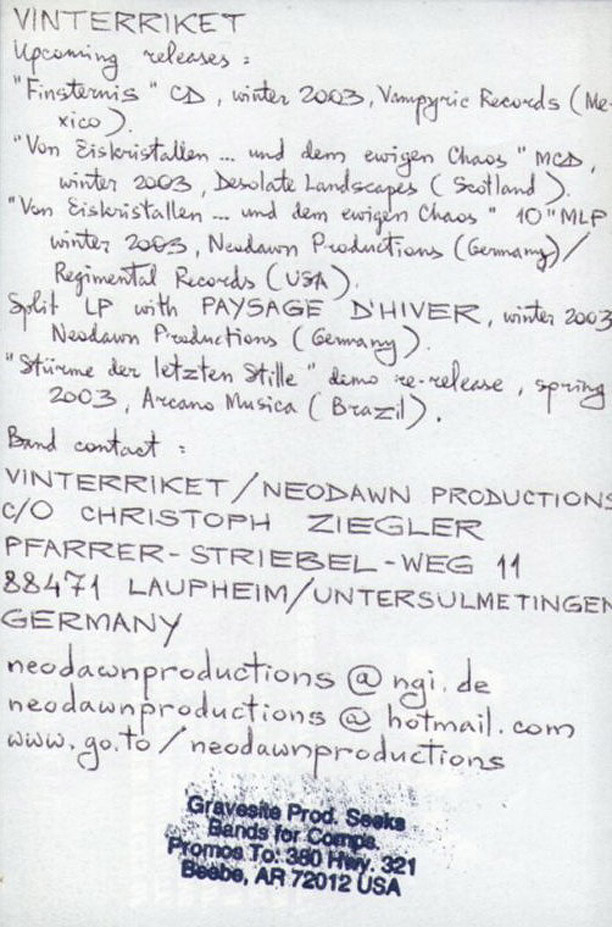 VINTERRIKET
Upcoming releases :
"Finsternis" CD , winter 2003, Vampyric Records (Me-
xico).
"Von Eiskristallen ... und dem ewigen Chaos" MCD,
winter 2003, Desolate Landscapes (Scotland).
"Von Eiskristallen ... und dem ewigen Chaos" 10"MLP
winter 2003, Neodawn Productions (Germany)/
Regimental Records (USA).
Split LP with PAYSAGE D'HIVER, winter 2003
Neodawn Productions (Germany).
"Stürme der letzten Stille" demo re-release, spring
2003, Arcano Musica (Brazil).
Band contact :
VINTERRIKET/NEODAWN PRODUCTIONS
C/O CHRISTOPH ZIEGLER
PFARRER-STRIEBEL-WEG 11
88471 LAUPHEIM/UNTERSULMETINGEN
GERMANY
neodawnproductions @ ngi.de
neodawnproductions @ hotmail.com
www.go.to/neodawnproductions
Gravesite Prod. Seeks
Bands for Comps.
Promos To: 380 Hwy. 321
Beebe, AR 72012 USA